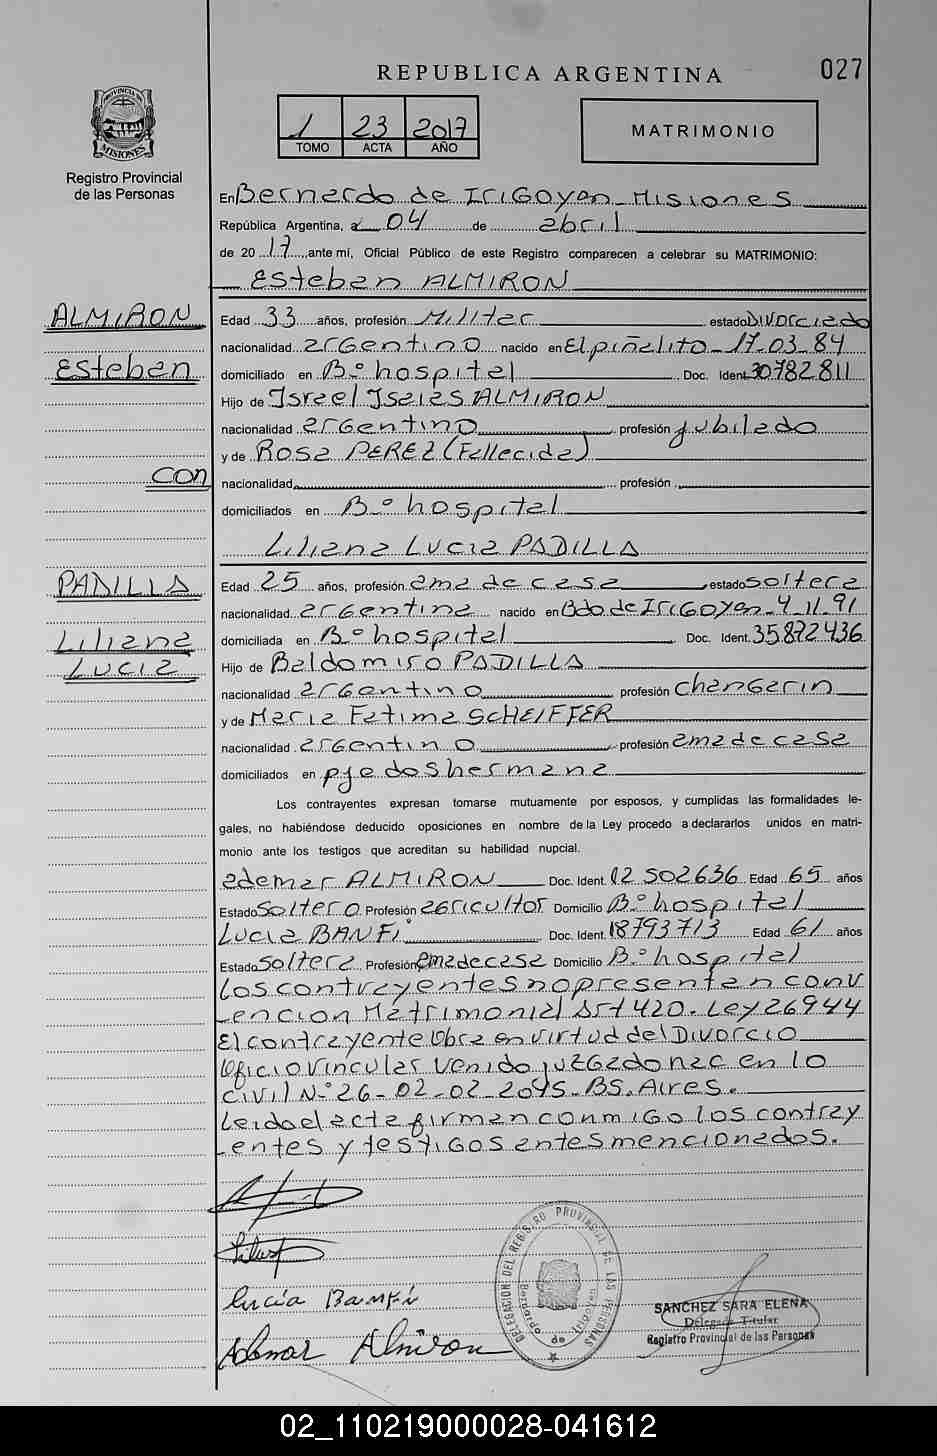 REPUBLICA ARGENTINA
027
PROVINCIA DE MISIONES
Registro Provincial
de las Personas
1 23 2017
TOMO ACTA AÑO
MATRIMONIO
En Bernardo de IriGoyen Misiones
República Argentina, a 04 de abril
de 2017, ante mí, Oficial Público de este Registro comparecen a celebrar su MATRIMONIO:
Esteban ALMIRON
ALMIRON
Esteban
Con
PADILLA
Liliana
Lucia
Edad 33 años, profesión Militar estado Divorciado
nacionalidad arGentino nacido en El piñalito 17.03.84
domiciliado en B° hospital Doc. Ident. 30782811
Hijo de Israel Isaias ALMIRON
nacionalidad arGentino profesión jubilado
y de Rosa PEREZ (Fallecida)
nacionalidad profesión
domiciliados en B° hospital
Liliana Lucia PADILLA
Edad 25 años, profesión ama de casa estado soltera
nacionalidad arGentina nacido en Bdo de IriGoyen 4.11.91
domiciliada en B° hospital Doc. Ident. 35872436
Hijo de Baldomiro PADILLA
nacionalidad arGentino profesión chanGarin
y de Maria Fatima SCHEIFFER
nacionalidad arGentino profesión ama de casa
domiciliados en pje dos hermana
Los contrayentes expresan tomarse mutuamente por esposos, y cumplidas las formalidades le-
gales, no habiéndose deducido oposiciones en nombre de la Ley procedo a declararlos unidos en matri-
monio ante los testigos que acreditan su habilidad nupcial.
ademar ALMIRON Doc. Ident. 12 502636 Edad 65 años
Estado Soltero Profesión aGricultor Domicilio B° hospital
Lucia BANFi Doc. Ident. 18793713 Edad 61 años
Estado Soltera Profesión ama de casa Domicilio B° hospital
Los contrayentes no presentan conv
encion Matrimonial Art 420. Ley 26944
El contrayente Obra en virtud del Divorcio
Oficio vincular venido juzGado nac en lo
civil N° 26 - 02-02-2015. BS. Aires.
Leida el acta firman conmiGo los contray
entes y testiGos antes mencionados.
Lucía Banfi
Ademar Almiron
DELEGACION DEL REGISTRO PROVINCIAL DE LAS PERSONAS
Bernardo de Irigoyen
SANCHEZ SARA ELENA
Delegada Titular
Registro Provincial de las Personas
02_110219000028-041612